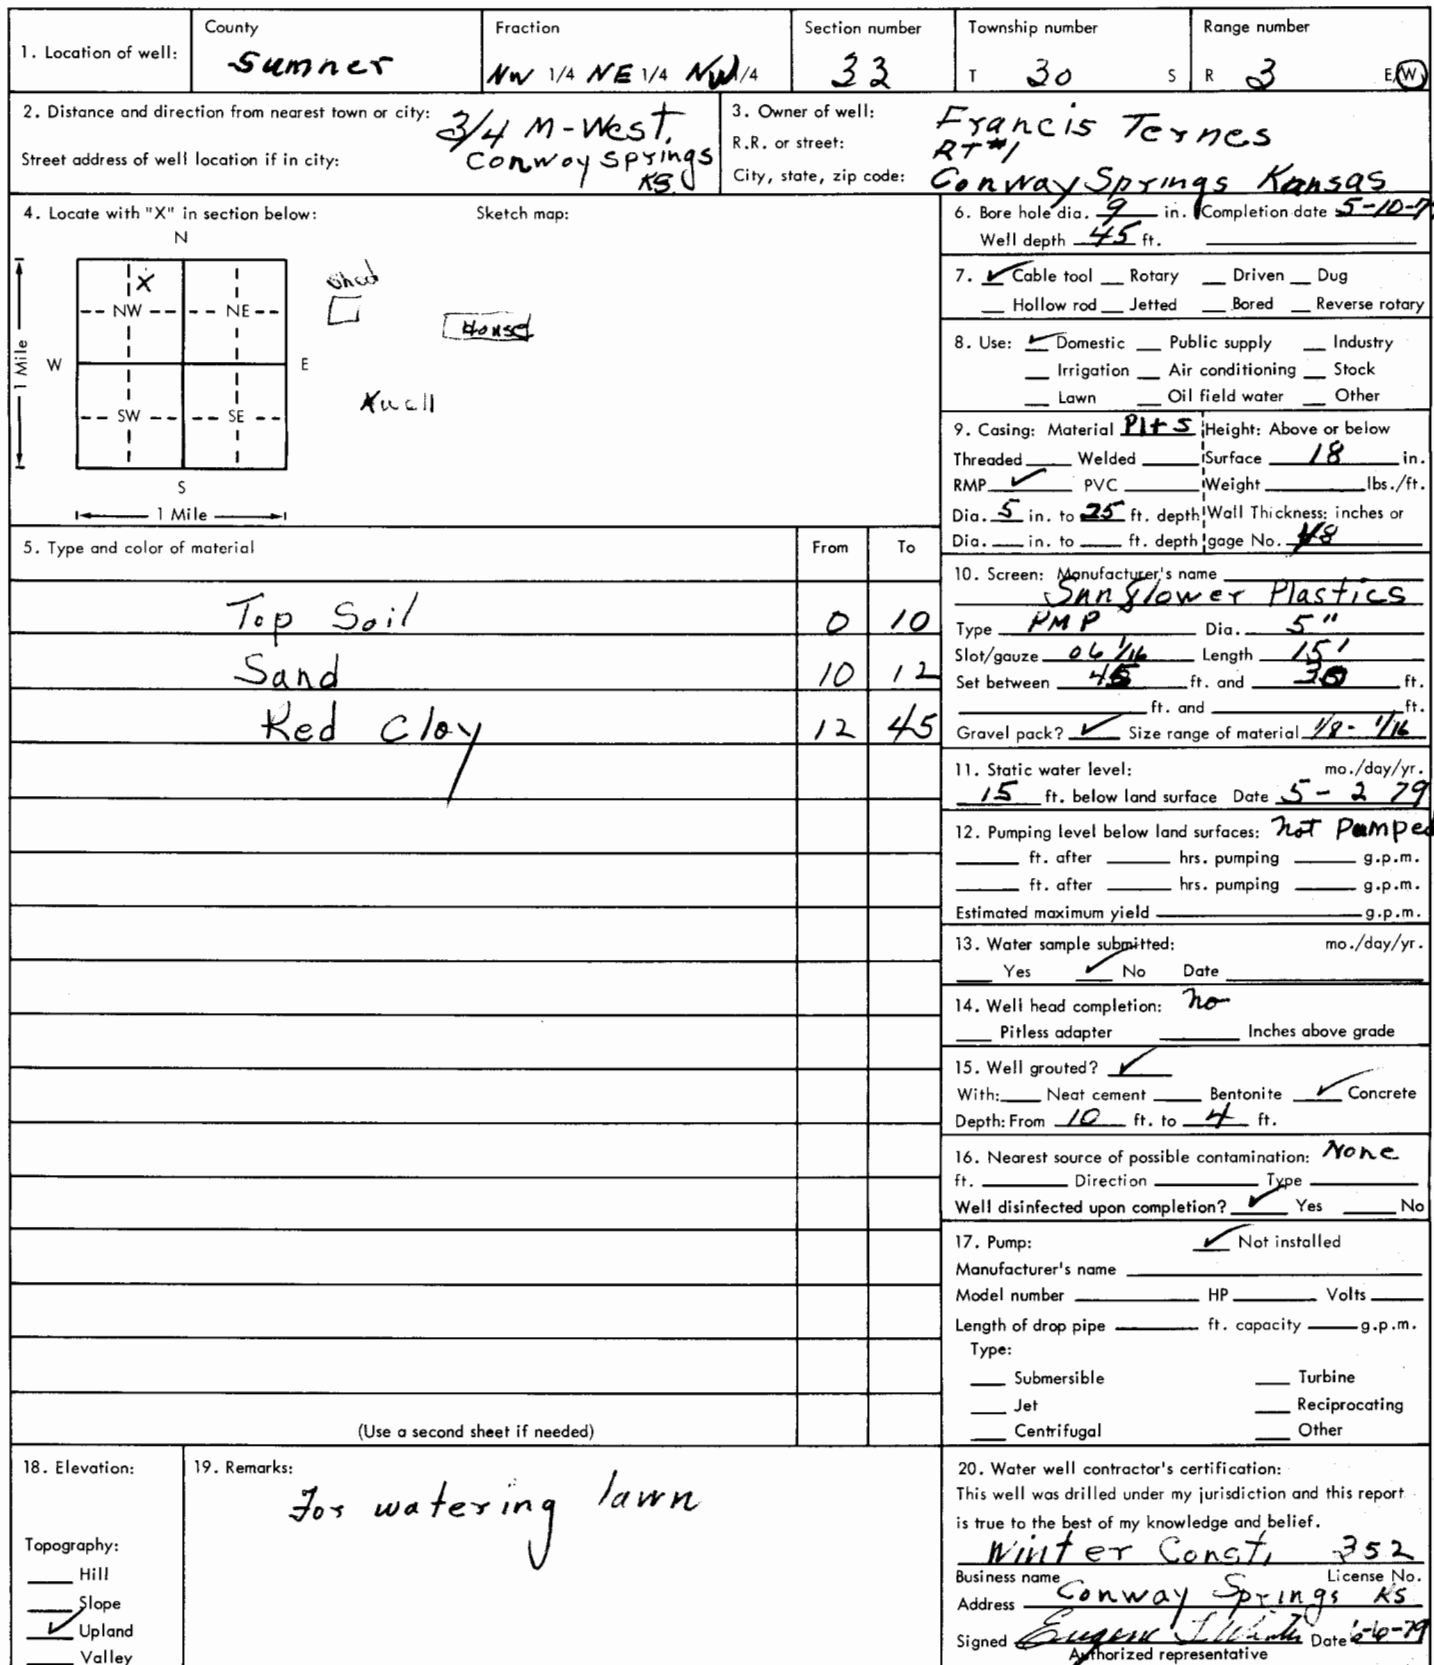 1. Location of well:
County
Sumner
Fraction
NW 1/4 NE 1/4 NW 1/4
Section number
33
Township number
T 30 S
Range number
R 3 E/W
2. Distance and direction from nearest town or city: 3/4 M-West.
Conway Springs
KS
Street address of well location if in city:
3. Owner of well: Francis Ternes
R.R. or street: RT #1
City, state, zip code: Conway Springs Kansas
4. Locate with "X" in section below:
Sketch map:
N
X
NW
NE
W
E
SW
SE
S
1 Mile
1 Mile
Shed
House
X well
5. Type and color of material
From
To
Top Soil 0 10
Sand 10 12
Red Clay 12 45
(Use a second sheet if needed)
6. Bore hole dia. 9 in. Completion date 5-10-7
Well depth 45 ft.
7. ✓ Cable tool Rotary Driven Dug
Hollow rod Jetted Bored Reverse rotary
8. Use: ✓ Domestic Public supply Industry
Irrigation Air conditioning Stock
Lawn Oil field water Other
9. Casing: Material Height: Above or below
Threaded Welded Surface 18 in.
RMP ✓ PVC Weight lbs./ft.
Dia. 5 in. to 25 ft. depth Wall Thickness: inches or
Dia. in. to ft. depth gage No.
10. Screen: Manufacturer's name
Sunflower Plastics
Type Dia. 5"
Slot/gauze 06 1/16 Length 15'
Set between 45 ft. and ft.
ft. and ft.
Gravel pack? ✓ Size range of material 1/8 - 1/16
11. Static water level: mo./day/yr.
15 ft. below land surface Date 5 - 2 79
12. Pumping level below land surfaces: not Pumped
ft. after hrs. pumping g.p.m.
ft. after hrs. pumping g.p.m.
Estimated maximum yield g.p.m.
13. Water sample submitted: mo./day/yr.
Yes ✓ No Date
14. Well head completion: no
Pitless adapter Inches above grade
15. Well grouted? ✓
With: Neat cement Bentonite ✓ Concrete
Depth: From 10 ft. to 4 ft.
16. Nearest source of possible contamination: None
ft. Direction Type
Well disinfected upon completion? ✓ Yes No
17. Pump: ✓ Not installed
Manufacturer's name
Model number HP Volts
Length of drop pipe ft. capacity g.p.m.
Type:
Submersible Turbine
Jet Reciprocating
Centrifugal Other
18. Elevation:
Topography:
Hill
Slope
✓ Upland
Valley
19. Remarks:
For watering lawn
20. Water well contractor's certification:
This well was drilled under my jurisdiction and this report
is true to the best of my knowledge and belief.
Winter Const. 352
Business name License No.
Address Conway Springs KS
Signed Eugene J Winter Date 6-6-79
Authorized representative